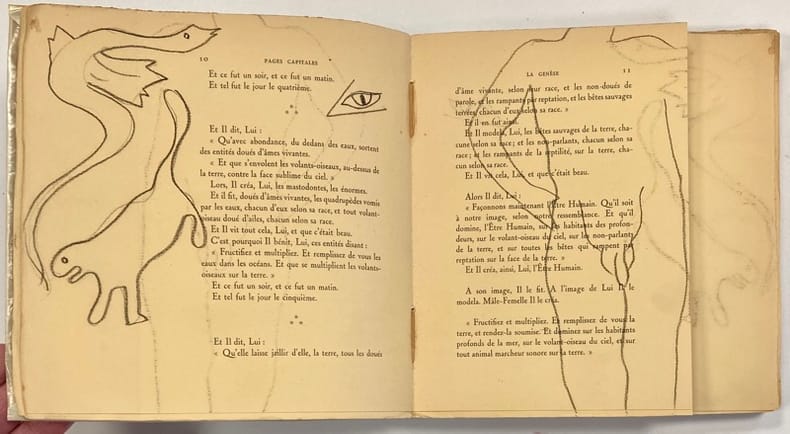 10 PAGES CAPITALES
Et ce fut un soir, et ce fut un matin.
Et tel fut le jour le quatrième.
Et Il dit, Lui :
« Qu'avec abondance, du dedans des eaux, sortent
des entités doués d'âmes vivantes.
« Et que s'envolent les volants-oiseaux, au-dessus de
la terre, contre la face sublime du ciel. »
Lors, Il créa, Lui, les mastodontes, les énormes.
Et il fit, doués d'âmes vivantes, les quadrupèdes vomis
par les eaux, chacun d'eux selon sa race, et tout volant-
oiseau doué d'ailes, chacun selon sa race.
Et Il vit tout cela, Lui, et que c'était beau.
C'est pourquoi Il bénit, Lui, ces entités disant :
« Fructifiez et multipliez. Et remplissez de vous les
eaux dans les océans. Et que se multiplient les volants-
oiseaux sur la terre. »
Et ce fut un soir, et ce fut un matin.
Et tel fut le jour le cinquième.
Et Il dit, Lui :
« Qu'elle laisse jaillir d'elle, la terre, tous les doués
LA GENÈSE 11
d'âme vivante, selon leur race, et les non-doués de
parole, et les rampants par reptation, et les bêtes sauvages
terrées, chacun d'eux selon sa race. »
Et il en fut ainsi.
Et Il modela, Lui, les bêtes sauvages de la terre, cha-
cune selon sa race ; et les non-parlants, chacun selon sa
race ; et les rampants de la reptilité, sur la terre, cha-
cun selon sa race.
Et Il vit cela, Lui, et que c'était beau.
Alors Il dit, Lui :
« Façonnons maintenant l'Être Humain. Qu'il soit
à notre image, selon notre ressemblance. Et qu'il
domine, l'Être Humain, sur les habitants des profon-
deurs, sur le volant-oiseau du ciel, sur les non-parlants
de la terre, et sur toutes les bêtes qui rampent par
reptation sur la face de la terre. »
Et Il créa, ainsi, Lui, l'Être Humain.
A son image, Il le fit. A l'image de Lui Il le
modela. Mâle-Femelle Il le créa.
« Fructifiez et multipliez. Et remplissez de vous la
terre, et rendez-la soumise. Et dominez sur les habitants
profonds de la mer, sur le volant-oiseau du ciel, et sur
tout animal marcheur sonore sur la terre. »